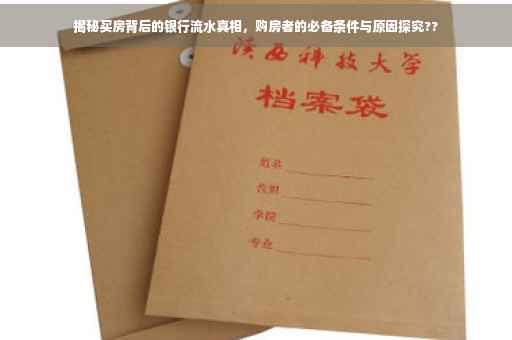 揭秘买房背后的银行流水真相，购房者的必备条件与原因探究??
陕西科技大学
档案袋
姓名
学院
专业